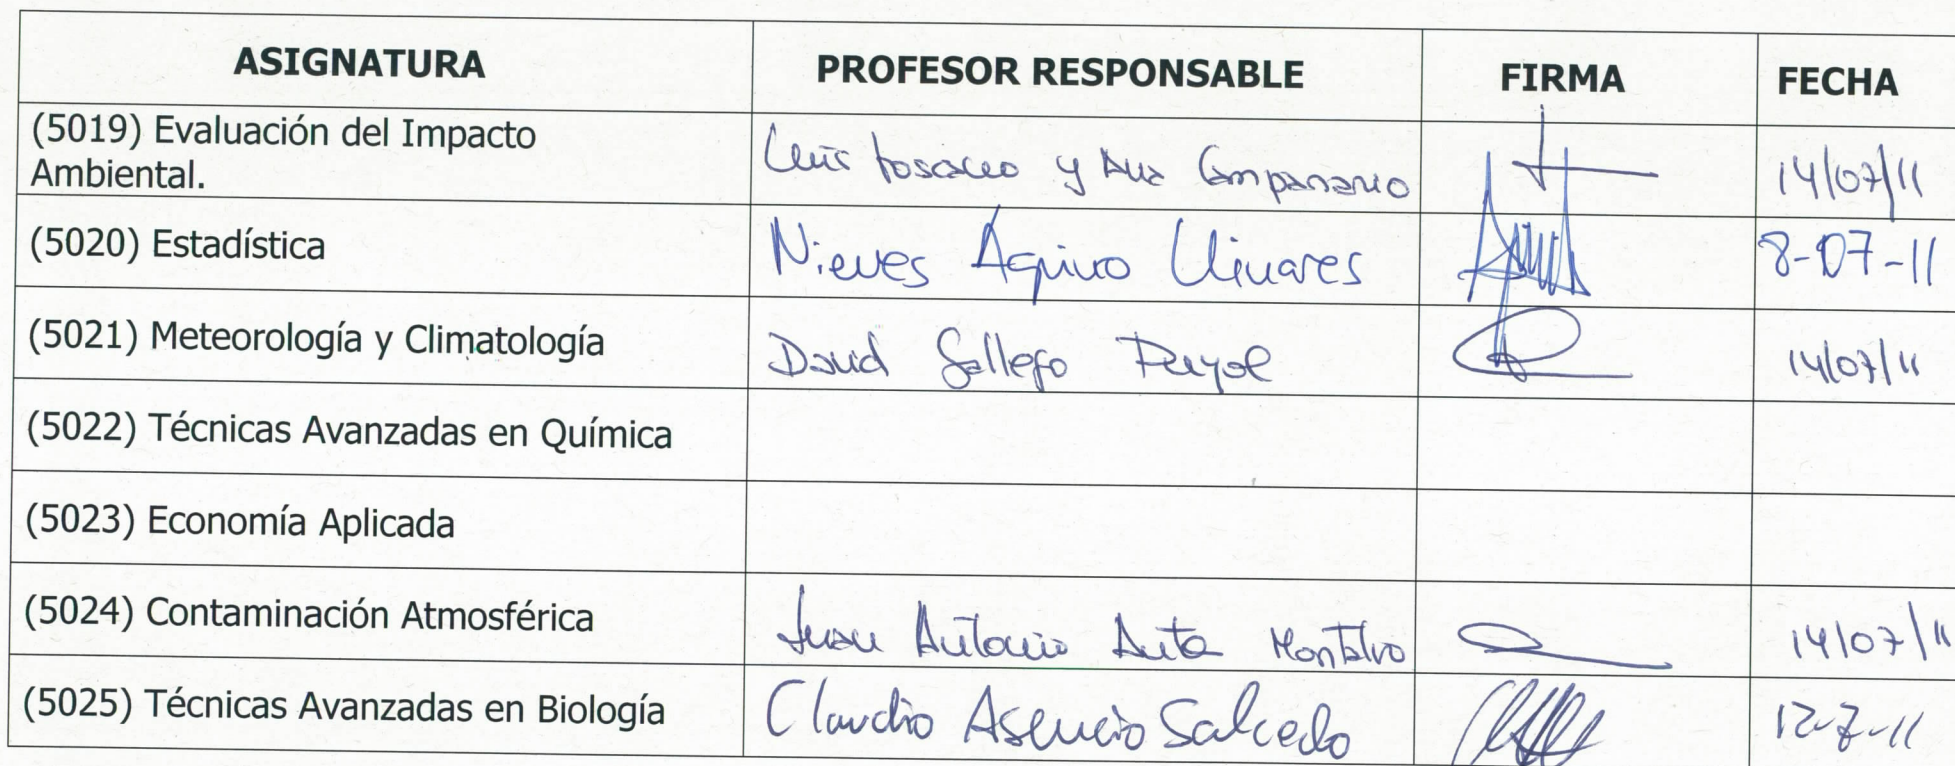 ASIGNATURA PROFESOR RESPONSABLE FIRMA FECHA
(5019) Evaluación del Impacto
Ambiental. Luis Toscano y Ana Campanario 14/07/11
(5020) Estadística Nieves Aquino Llinares 8-07-11
(5021) Meteorología y Climatología David Gallego Puyol 14/07/11
(5022) Técnicas Avanzadas en Química
(5023) Economía Aplicada
(5024) Contaminación Atmosférica Juan Antonio Anta Montalvo 14/07/11
(5025) Técnicas Avanzadas en Biología Claudio Asencio Salcedo 12-7-11